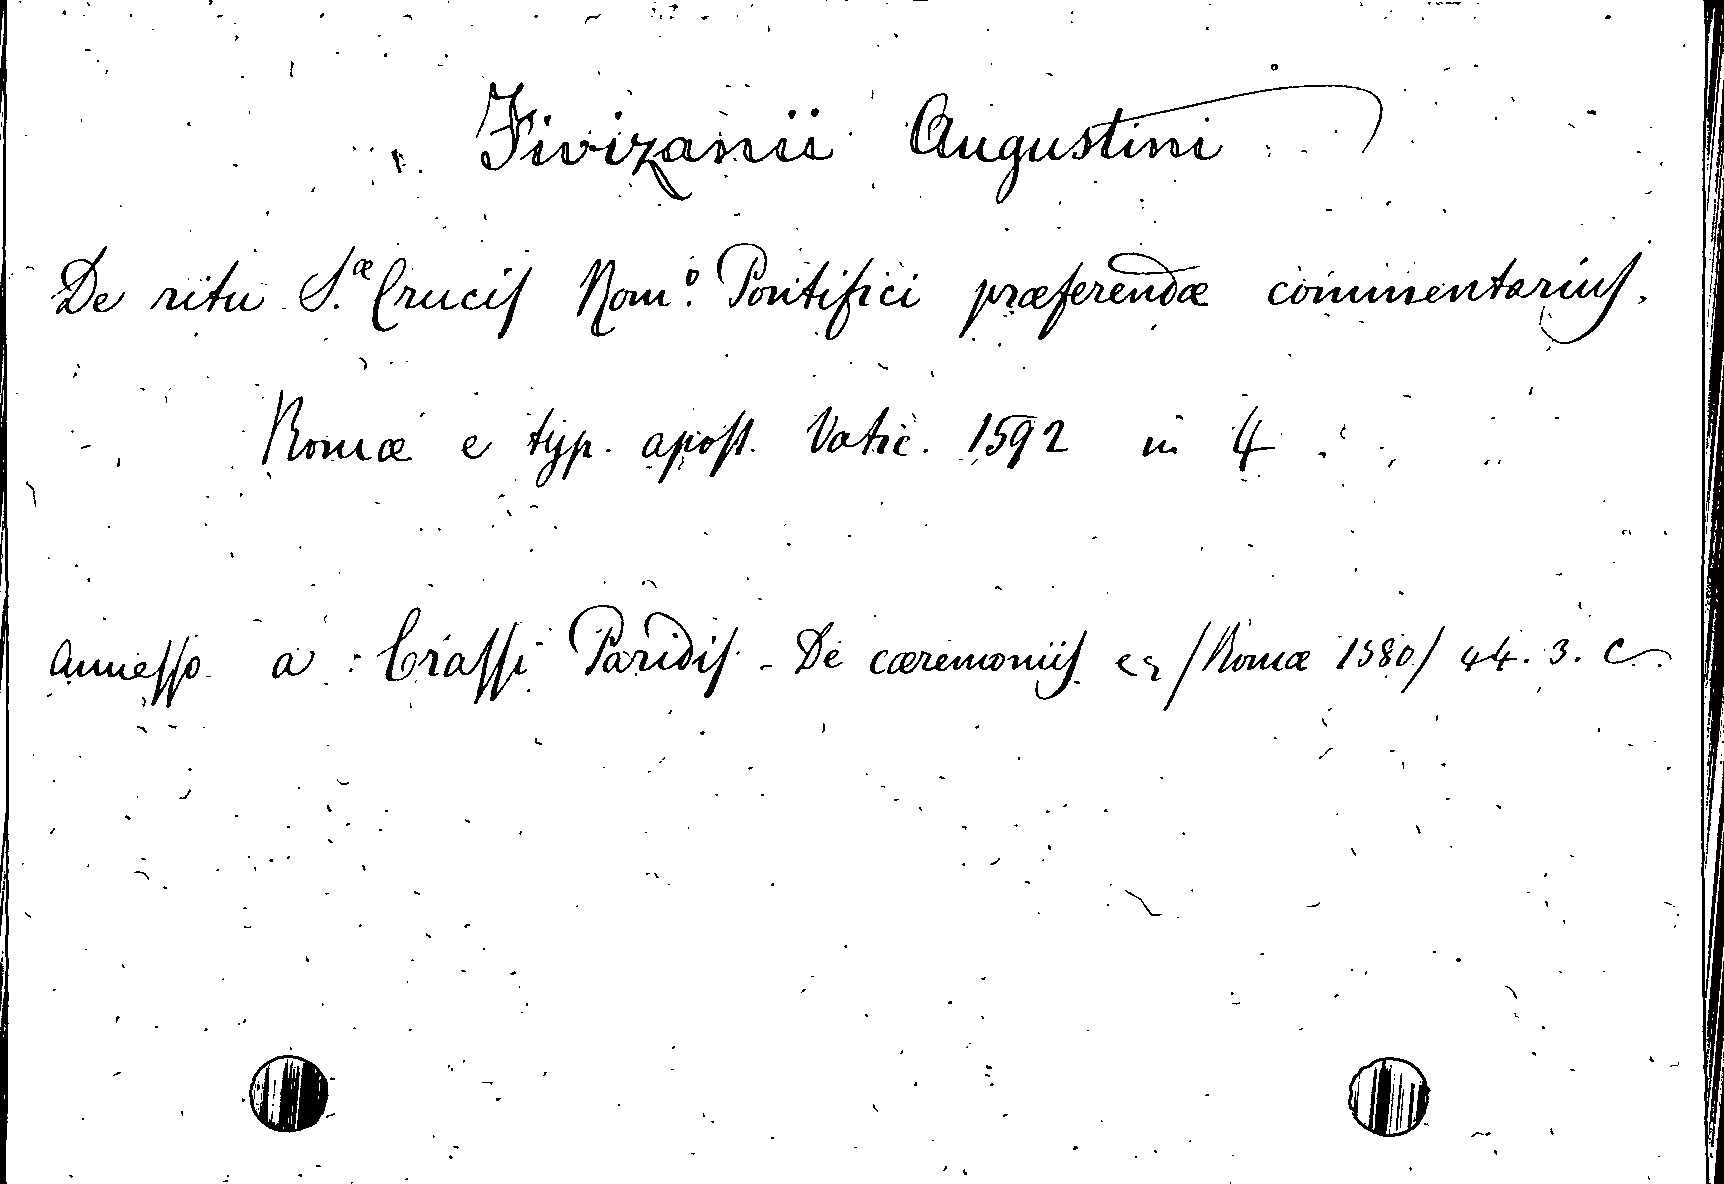 Fivizanii Augustini
De ritu S.æ Crucis Rom.º Pontifici præferendæ commentarius.
Romæ e typ. apost. Vatic. 1592 in 4
annesso a : Crassi Paridis - De cæremoniis &c /Romæ 1580/ 44. 3. C.